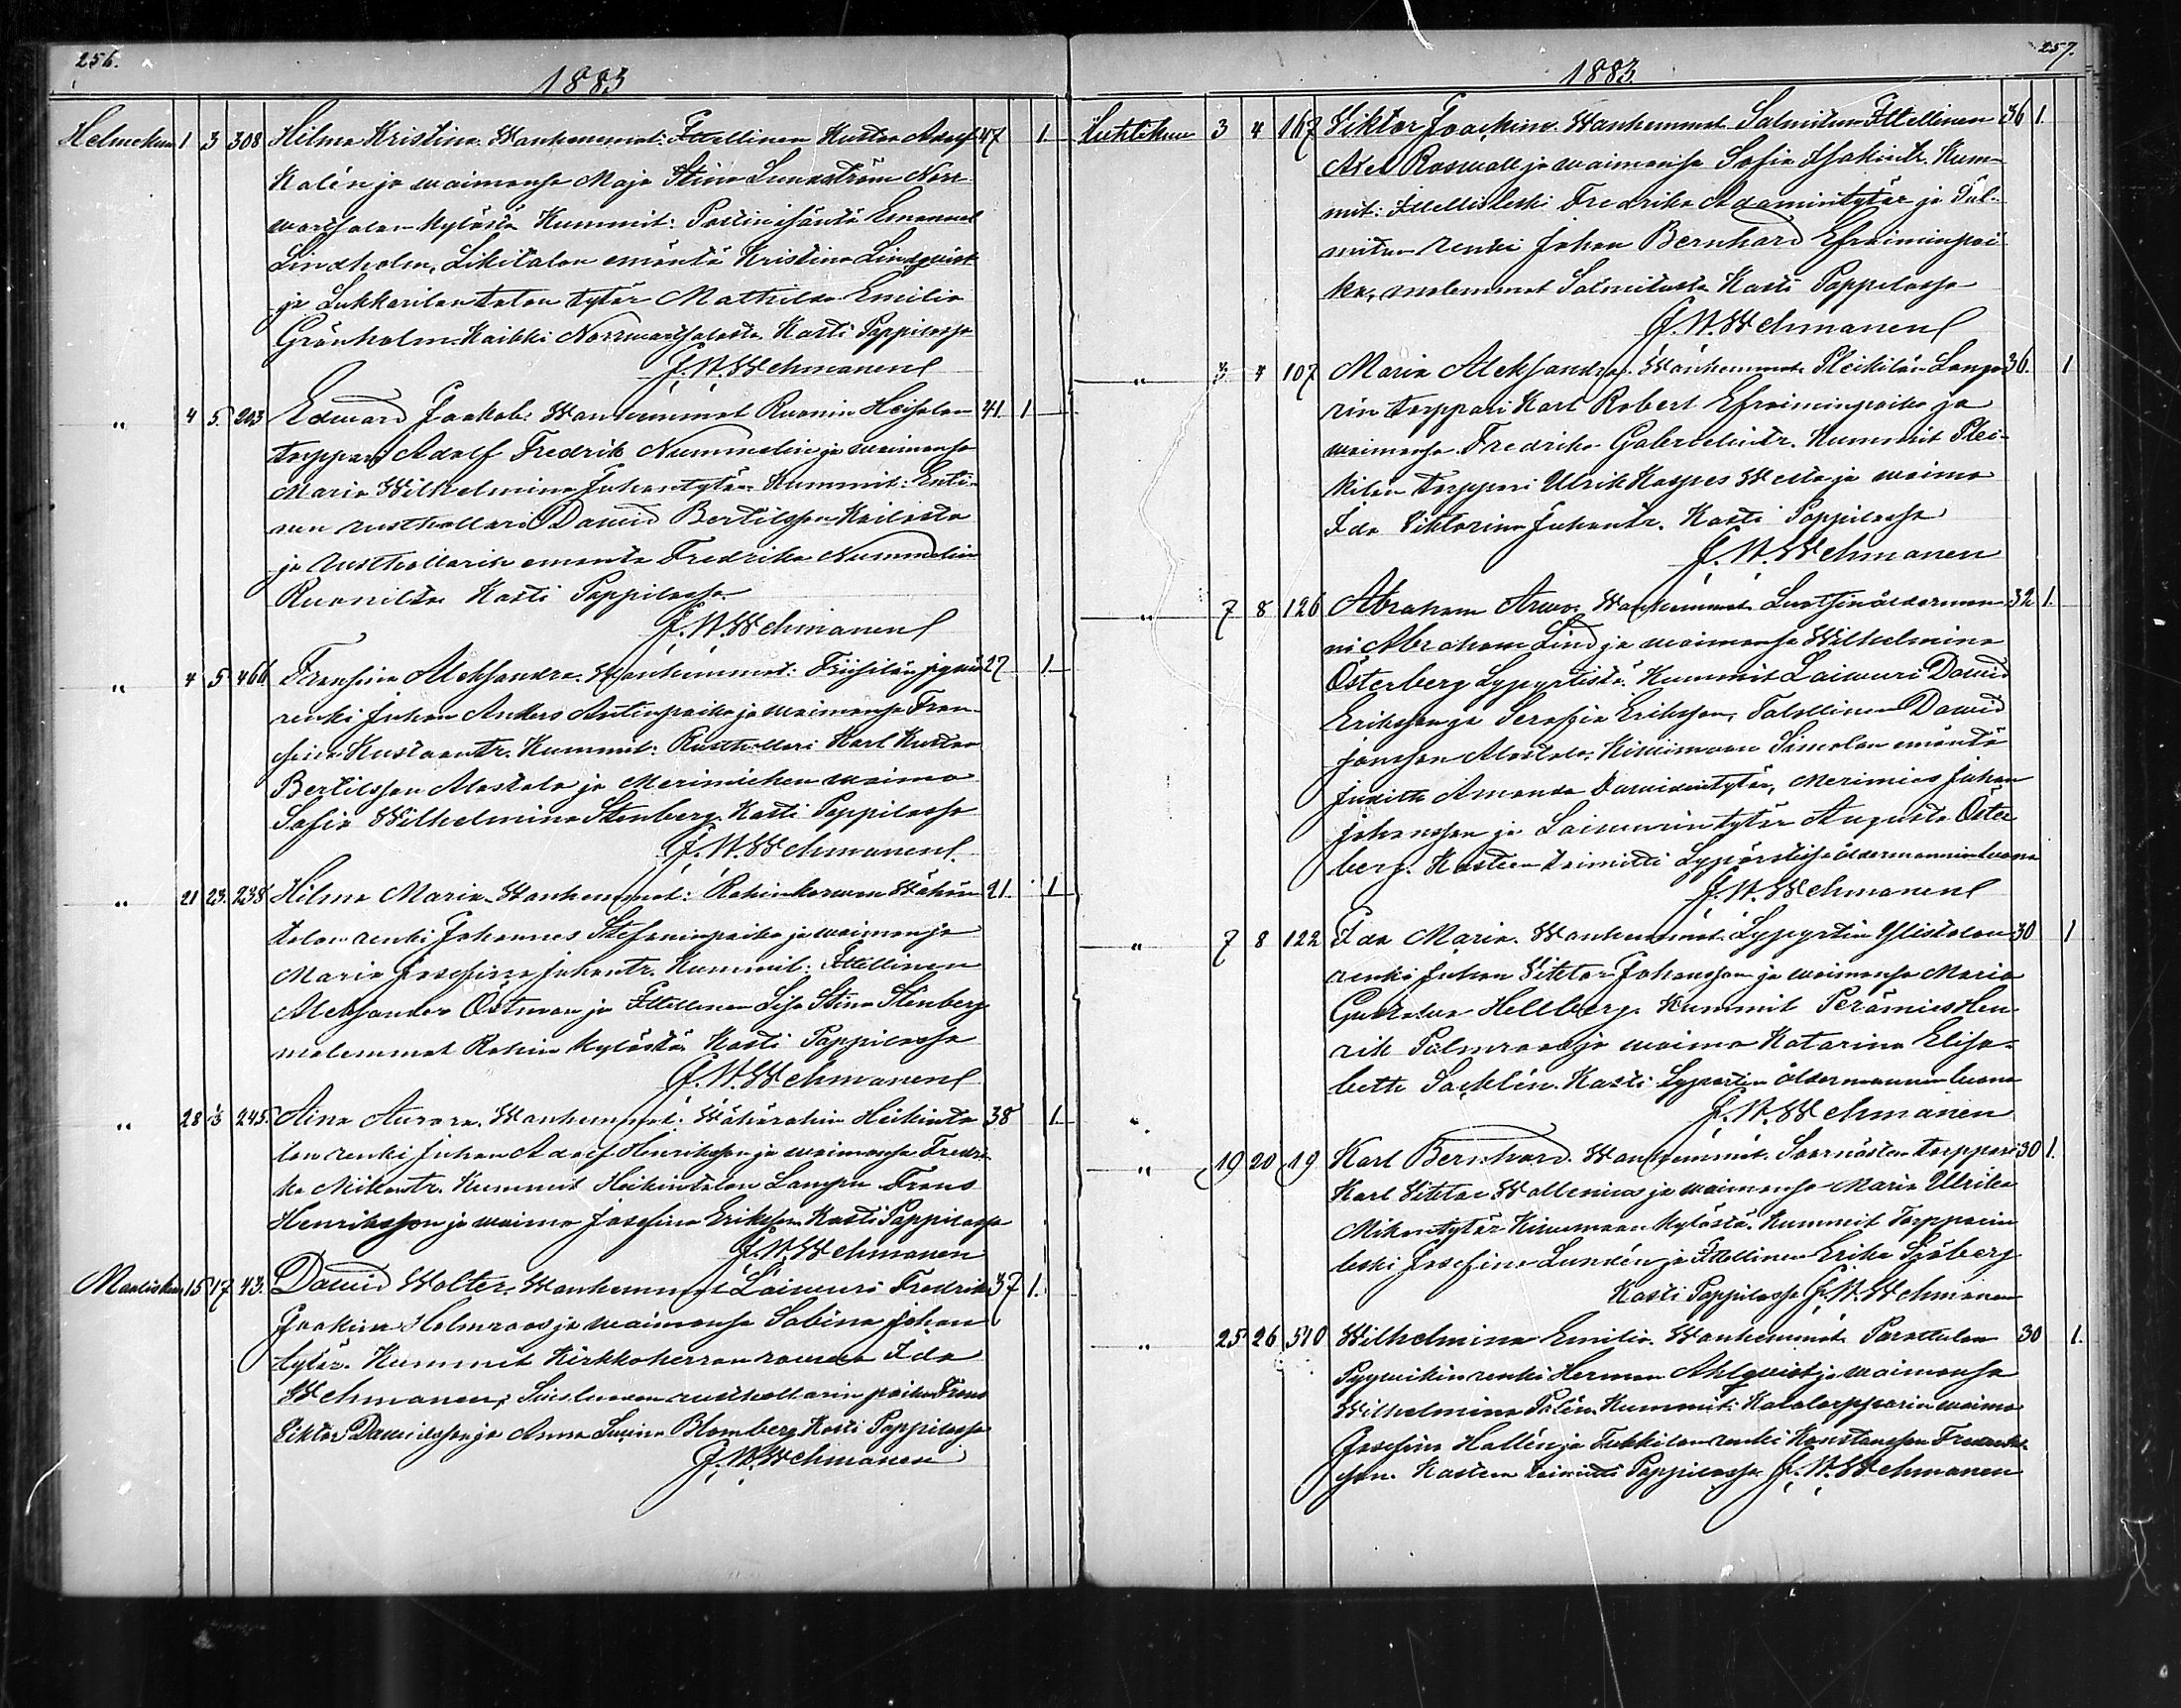 256.
1883
Helmekuu 1 3 308 Hilma Kristina. Wanhemmat: Itsellinen Kustaa Adolf 47 1
Kalén ja waimonsa Maja Stina Lundström Norr-
wartsalan kylästä Kummit: Postinisäntä Emanuel
Lindholm, Likitalon emäntä Kristina Lindqvist
ja Lukkarilan talon tytär Mathilda Emilia
Grönholm Kaikki Norrwartsalosta. Kasti Pappilassa
J. W. Wehmanen
" 4 5. 203 Edward Jaakob. Wanhemmat Ruonin Heiselan 41. 1
torppari Adolf Fredrik Nummelin ja waimonsa
Maria Wilhelmina Juhantytär. Kummit:
rusthollari Dawid Bertilsson
ja rusthollarin emäntä Fredrika Nummelin
Ruonilta Kasti Pappilassa
J. W. Wehmanen
" 4 5 466 Fransina Aleksandra. Wanhemmat: 27 1
renki Juhan Anders Antinpoika ja waimonsa Fran-
sina Kustaantr. Kummit: Rusthollari Karl Kustaa
Bertilsson Alastalo ja Merimiehen waimo
Sofia Wilhelmina Stenberg. Kasti Pappilassa
J. W. Wehmanen
" 21 23. 238 Hilma Maria. Wanhemmat: Rahinkarwan Wähän- 21. 1
talon renki Johannes Stefaninpoika ja waimonsa
Maria Josefina Juhantr. Kummit: Itsellinen
Aleksander Östman ja Itsellinen Lisa Stina Stenberg
molemmat Rahin kylästä. Kasti Pappilassa
J. W. Wehmanen
" 28 1/3 245. Aina Aurora. Wanhemmat: Wähärahin Heikinta- 38 1
lon renki Juhan Adolf Henriksson ja waimonsa Fredri-
ka Mikontr. Kummit Heikintalon Lampu Frans
Henriksson ja waimo Josefina Eriksson Kasti Pappilassa
J. W. Wehmanen
Maalisku 15 17 43. Dawid Wolter. Wanhemmat Laiwuri Fredrik 37 1.
Joakim Holmroos ja waimonsa Sabina Johan-
tytär. Kummit Kirkkoherran rouwa Ida
Wehmanen, rusthollarin poika Frans
Viktor Dawidsson ja Anna Lowina Blomberg Kasti Pappilassa
J. W. Wehmanen
257.
1883
Huhtikuu 3 4 167 Viktor Joackim. Wanhemmat Salmitun Itsellinen 36 1.
Axel Roswall ja waimonsa Sofia Isakintr. Kum-
mit: Itsellisleski Fredrika Adamintytär ja Sal-
mitun renki Johan Bernhard Efraiminpoi-
ka, molemmat Salmitusta Kasti Pappilassa
J. W. Wehmanen
" 3 4 107 Maria Aleksandra. Wanhemmat Pleikilän Lampo- 36. 1
rin torppari Karl Robert Efraiminpoika ja
waimonsa Fredrika Gabrielintr. Kummit Plei-
kilän torppari Ulrik Kaspes Wella ja waimo
Ida Viktorina Juhantr. Kasti Pappilassa
J. W. Wehmanen
" 7 8 126 Abraham Arwo. Wanhemmat Luotsinålderman- 32 1.
ni Abraham Lind ja waimonsa Wilhelmina
Österberg Lypyrtistä. Kummit Laiwuri Dawid
Eriksson ja Serafia Eriksson, Talollinen Dawid
Jansson Alastalo, Kiwimaan Simolan emäntä
Judith Amanda Dawidintytär, Merimies Juhan
Johansson ja Laiwurintytär Augusta Öster-
berg. Kasteen toimitti Lypörtissä åldermannin luona
J. W. Wehmanen
" 7 8 122 Ida Maria. Wanhemmat Lypyrtin Ylistalon 30 1
renki Juhan Viktor Johansson ja waimonsa Maria
Gustawa Hellberg. Kummit Perämies Hen-
rik Palmroos ja waimo Katarina Elisa-
beth Sacklén. Kasti Lypertin åldermannin luona
" J. W. Wehmanen
" 19 20 19 Karl Bernhard. Wanhemmat. Saarnästen torppari 30 1.
Karl Viktor Wallenius ja waimonsa Maria Ulrika
Mikontytär Kiwimaan kylästä. Kummit Torpparin
leski Josefina Lundén ja Itsellinen Erika Sjöberg
Kasti Pappilassa J. W. Wehmanen
" 25 26 510 Wilhelmina Emilia. Wanhemmat Parattulan 30 1.
Pyywikin renki Herman Ahlqwist ja waimonsa
Wilhelmina Palén. Kummit: Kalatorpparin waimo
Josefina Hallén ja Tukkilan renki Konstantin Fredrik-
son. Kasteen toimitti Pappilassa J. W. Wehmanen